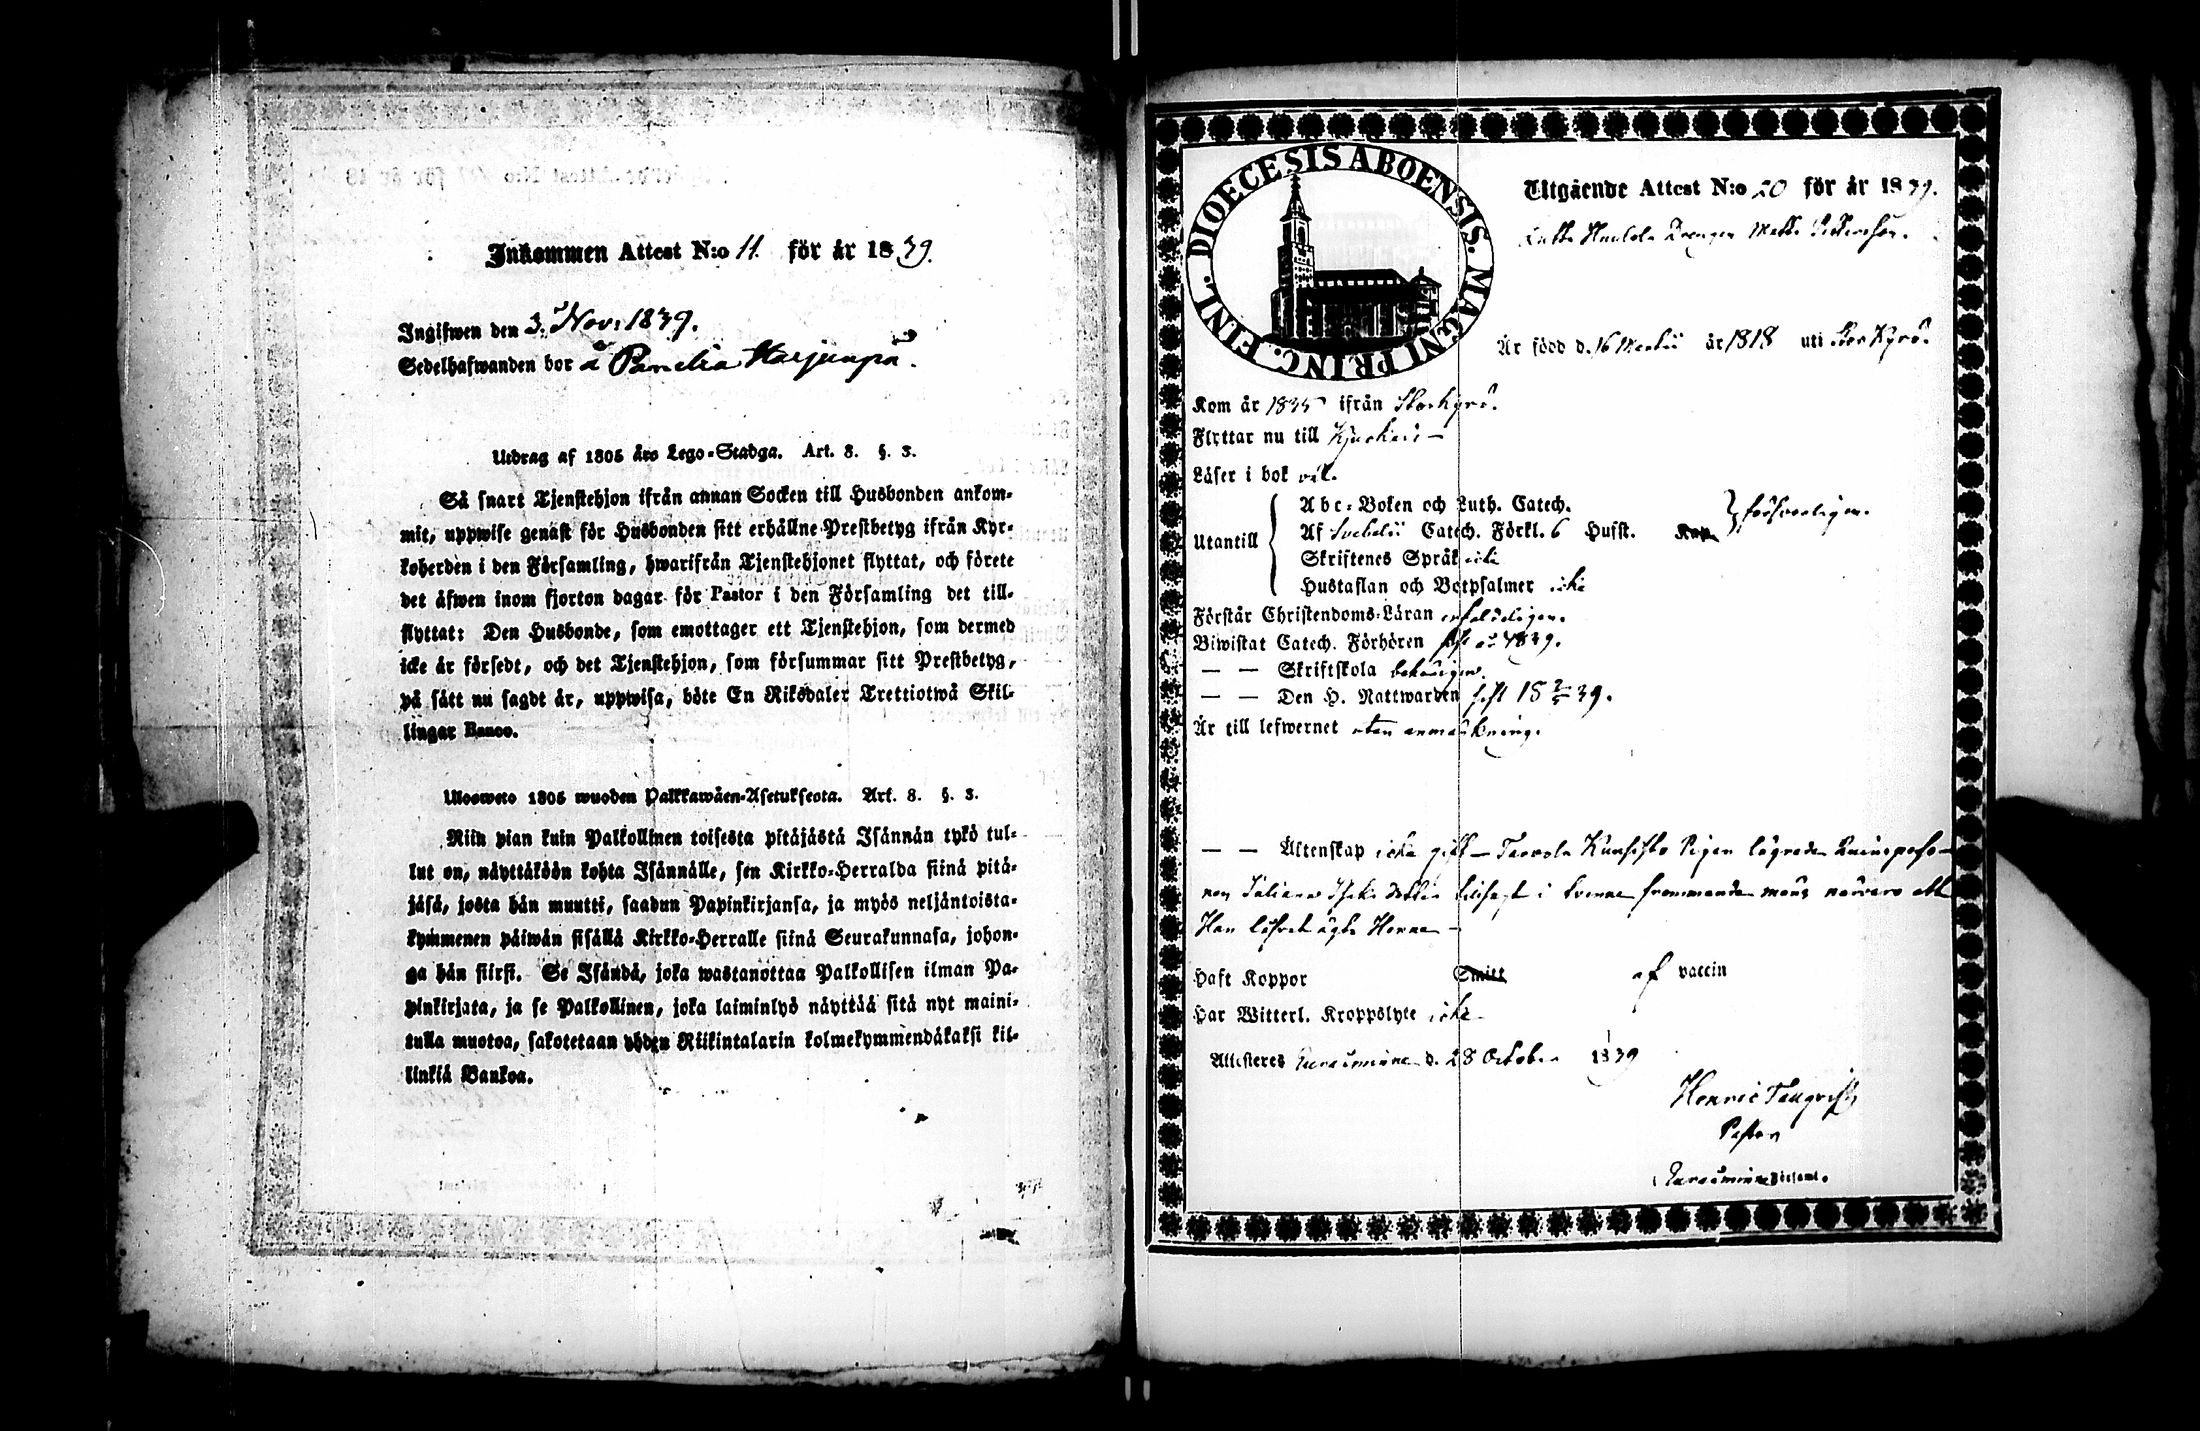 Inkommen Attest N:o 11. för år 1839.
Ingifwen den 3. Nov: 1839.
Sedelhafwanden bor å Panelia Harjunpä.
Utdrag af 1805 års Lego-Stadga. Art. 8. §. 3.
Så snart Tjenstehjon ifrån annan Socken till Husbonden ankom-
mit, uppwise genast för Husbonden sitt erhållne Prestbetyg ifrån Kyr-
koherden i den Församling, hwarifrån Tjenstehjonet flyttat, och förete
det äfwen inom fjorton dagar för Pastor i den Församling det till-
flyttat: Den Husbonde, som emottager ett Tjenstehjon, som dermed
icke är försedt, och det Tjenstehjon, som försummar sitt Prestbetyg,
på sätt nu sagdt är, uppwisa, böte En Riksdaler Trettiotwå Skil-
lingar Banco.
Ulosweto 1805 wuoden Palkkawäen-Asetuksesta. Art. 8. §. 3.
Niin pian kuin Palkollinen toisesta pitäjästä Isännän tykö tul-
lut on, näyttäköön kohta Isännälle, sen Kirkko-Herralda siinä pitä-
jäsä, josta hän muutti, saadun Papinkirjansa, ja myös neljäntoista-
kymmenen päiwän sisällä Kirkko-Herralle siinä Seurakunnasa, johon-
ga hän siirsi. Se Isändä, joka wastanottaa Palkollisen ilman Pa-
pinkirjata, ja se Palkollinen, joka laiminlyö näyttää sitä nyt maini-
tulla muotoa, sakotetaan yhden Riikintalarin kolmekymmendäkaksi kil-
linkiä Bankoa.
DIOECESIS ABOENSIS. MAGNI PRINC. FINL.
Utgående Attest N:o 20 för år 1839.
Drengen Matts
Är född d. 16 Martii år 1818 uti Stor Kyro.
Kom år 1835 ifrån Storkyro.
Flyttar nu till Kjukais –
Läser i bok väl.
Utantill
Abc-Boken och Luth. Catech.
Af Svebelii Catech. Förkl. 6 Husst. Kap.
försvarligen.
Skriftenes Språk icke
Hustaflan och Botpsalmer icke
Förstår Christendoms-Läran enfaldeligen.
Biwistat Catech. Förhören sist år 1839.
— — Skriftskola behörigen.
— — Den H. Nattwarden sist 18 39.
Är till lefwernet utan anmärkning.
— — Äktenskap icke gift –
Pigan lägrade Qvinsperso-
nen Juliana i tvenne frammande mäns närvaro att
Han
Haft Koppor Smitt af vaccin
Har Witterl. Kroppslyte icke
Attesteres Euraåminne d. 28 October 1839
Henric Tengvist
Pastor
Euraåminne Församl.